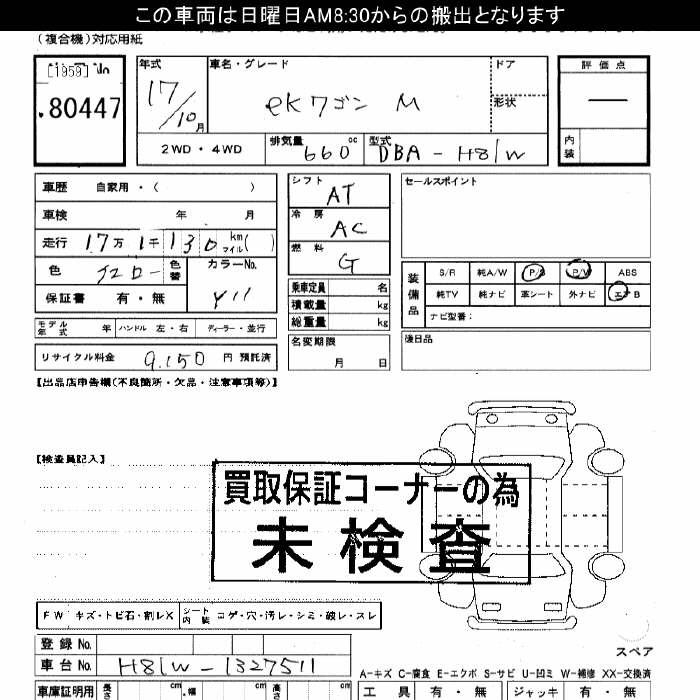 この車両は日曜日AM8:30からの搬出となります
(複合機)対応用紙
[1959]
80447
年式 車名・グレード ドア 評価点
17/10月 eKワゴン M 形状
2WD・4WD 排気量 660cc 型式 DBA-H81W 内装
車歴 自家用・( ) シフト AT セールスポイント
車検 年 月 冷房 AC
走行 17万1千130km マイル( ) 燃料 G
色 イエロー 色替 カラーNo. Y11
装備品 S/R 純A/W P/S P/W ABS
純TV 純ナビ 革シート 外ナビ エアB
ナビ型番:
保証書 有・無
乗車定員 名
積載量 kg
総重量 kg
モデル年式 年 ハンドル 左・右 ディーラー・並行
リサイクル料金 9,150 円 預託済
名変期限 月 日
後日品
【出品店申告欄(不良箇所・欠品・注意事項等)】
【検査員記入】
買取保証コーナーの為
未検査
FW キズ・トビ石・割レX シート内装 コゲ・穴・汚レ・シミ・破レ・スレ
登録No.
スペア
車台No. H81W-1327511
A-キズ C-腐食 E-エクボ S-サビ U-凹ミ W-補修 XX-交換済
車庫証明用 長さ cm 幅 cm 高さ cm 工具 有・無 ジャッキ 有・無